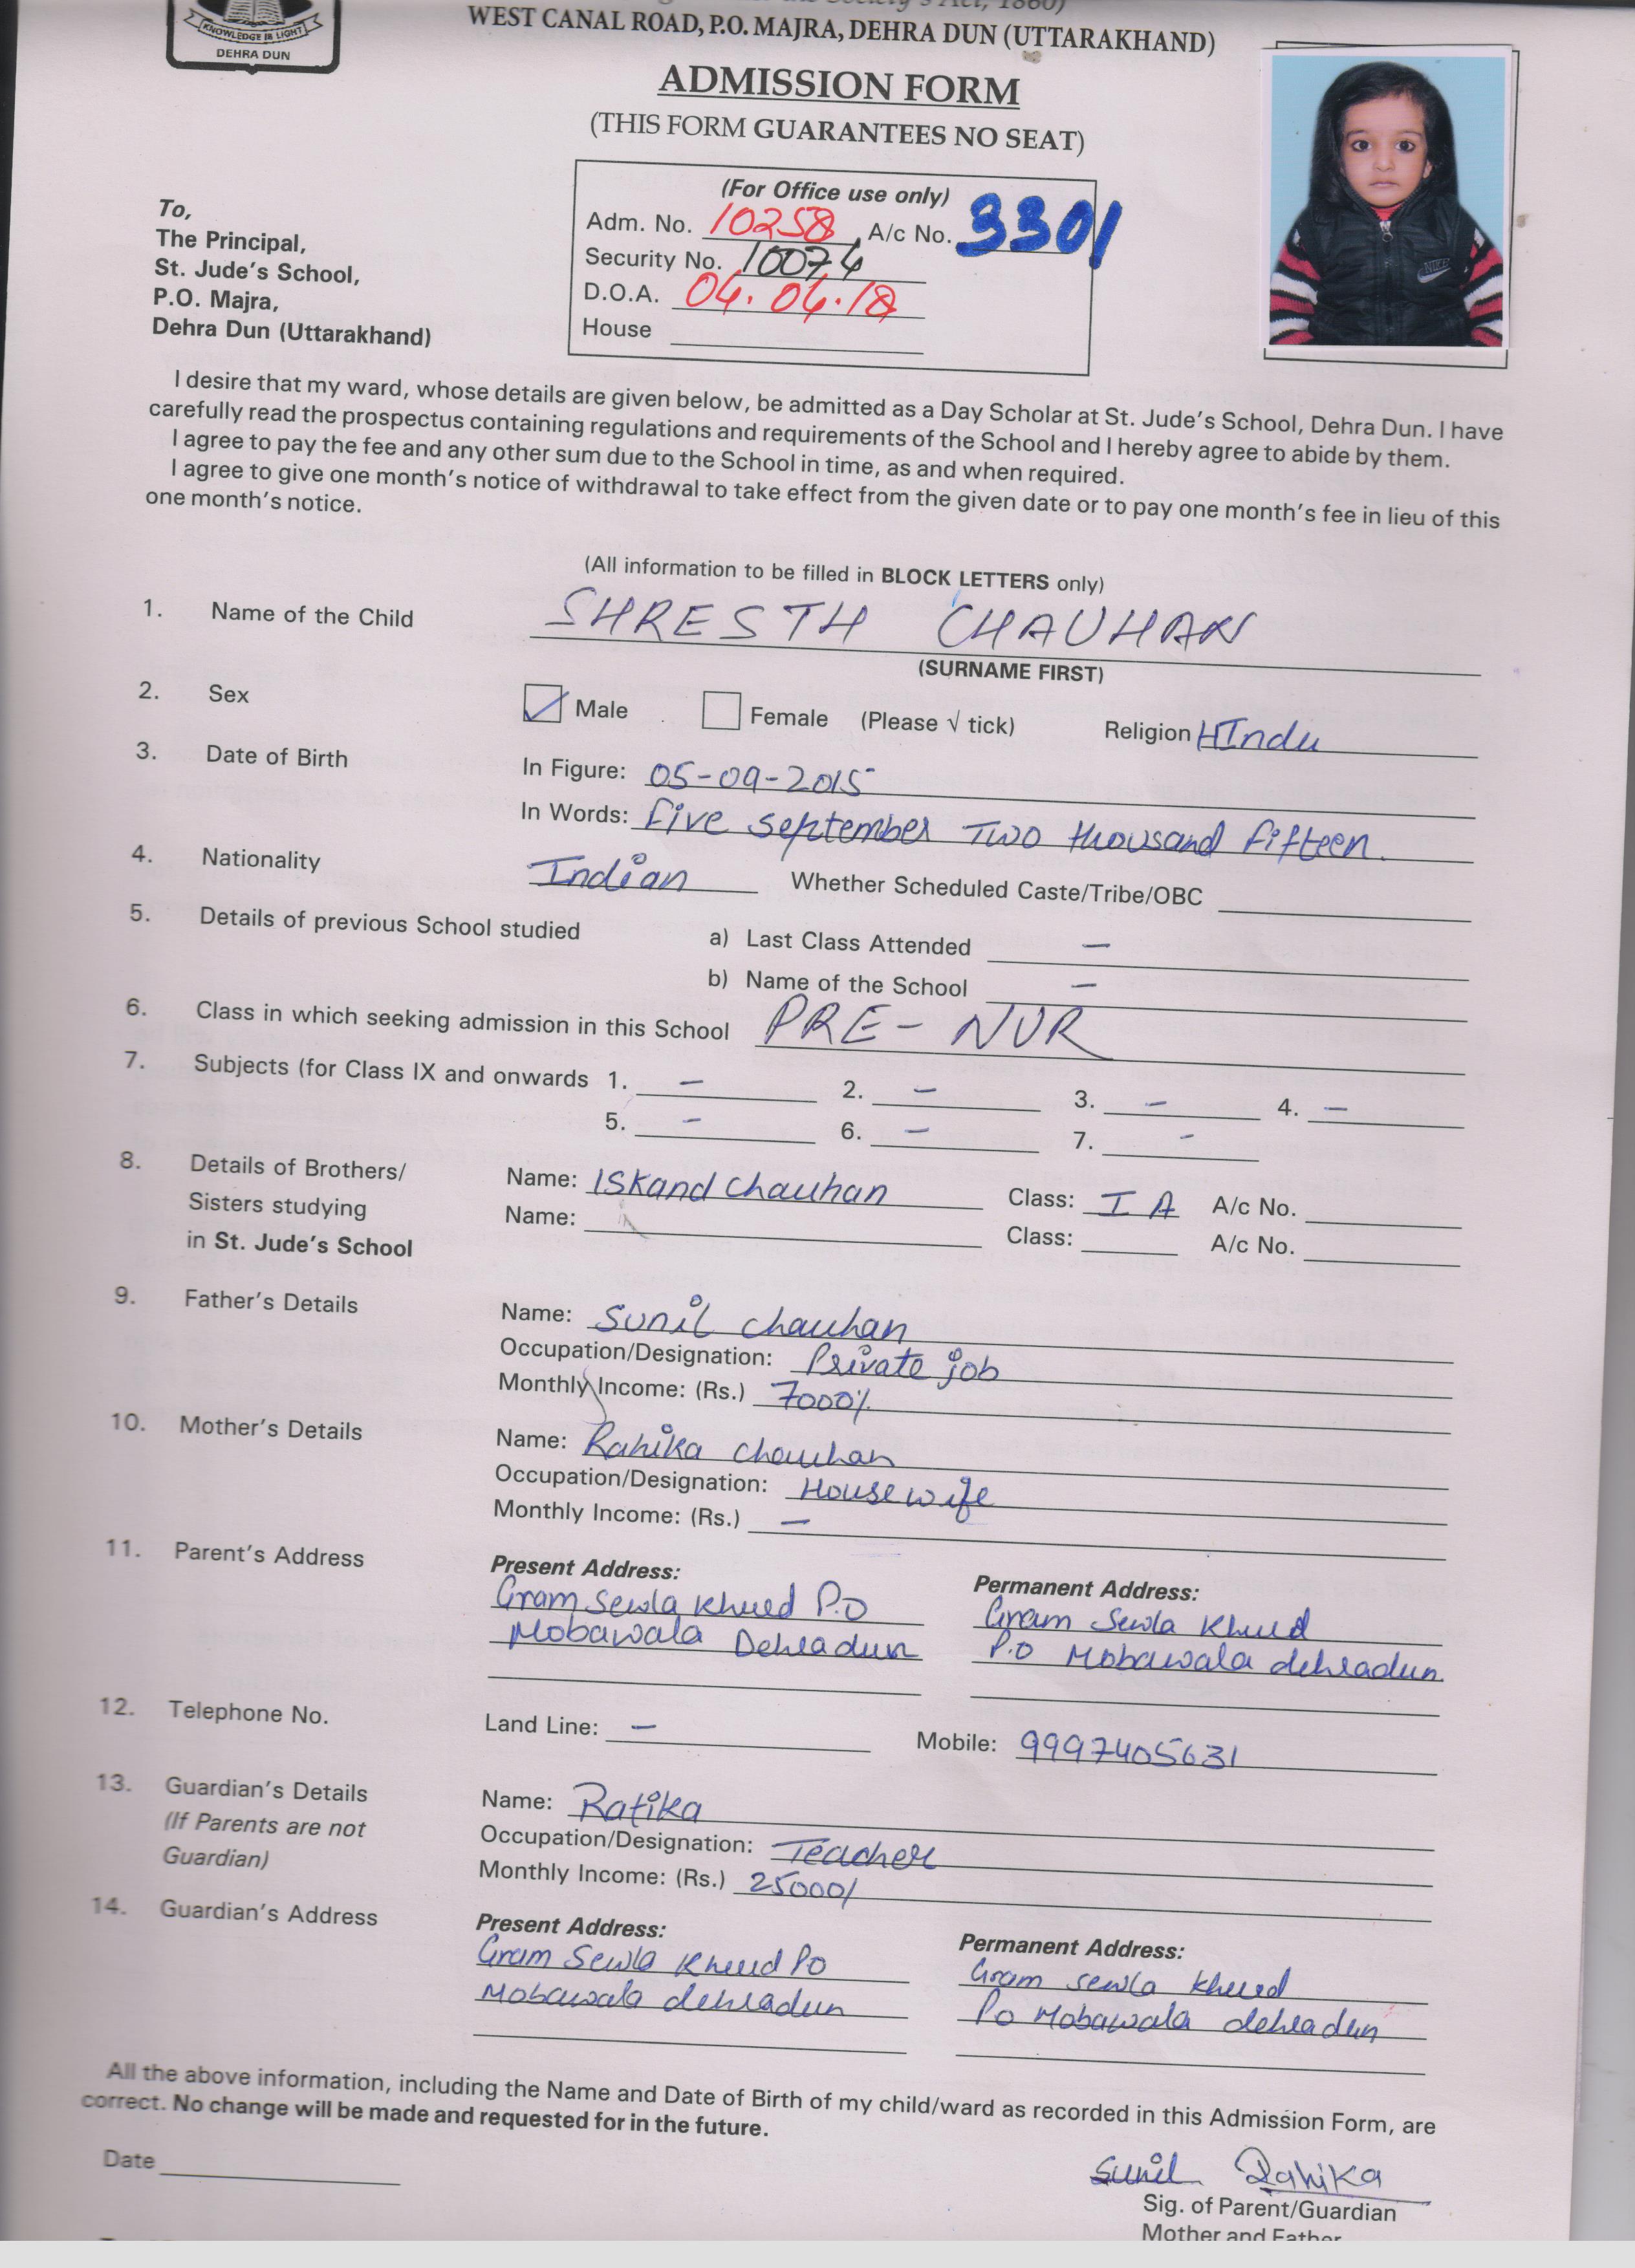 KNOWLEDGE IS LIGHT
DEHRA DUN
Society's Act, 1860)
WEST CANAL ROAD, P.O. MAJRA, DEHRA DUN (UTTARAKHAND)
ADMISSION FORM
(THIS FORM GUARANTEES NO SEAT)
(For Office use only)
Adm. No. 10258 A/c No. 3301
Security No. 10074
D.O.A. 04.04.18
House
To,
The Principal,
St. Jude's School,
P.O. Majra,
Dehra Dun (Uttarakhand)
NIKE
I desire that my ward, whose details are given below, be admitted as a Day Scholar at St. Jude's School, Dehra Dun. I have
carefully read the prospectus containing regulations and requirements of the School and I hereby agree to abide by them.
I agree to pay the fee and any other sum due to the School in time, as and when required.
I agree to give one month's notice of withdrawal to take effect from the given date or to pay one month's fee in lieu of this
one month's notice.
(All information to be filled in BLOCK LETTERS only)
1. Name of the Child SHRESTH CHAUHAN
(SURNAME FIRST)
2. Sex Male Female (Please √ tick) Religion HIndu
3. Date of Birth In Figure: 05-09-2015
In Words: five september Two thousand fifteen.
4. Nationality Indian Whether Scheduled Caste/Tribe/OBC
5. Details of previous School studied a) Last Class Attended –
b) Name of the School –
6. Class in which seeking admission in this School PRE - NUR
7. Subjects (for Class IX and onwards 1. – 2. – 3. – 4. –
5. – 6. – 7. –
8. Details of Brothers/ Name: ISkand chauhan Class: I A A/c No.
Sisters studying Name: Class: A/c No.
in St. Jude's School
9. Father's Details Name: Sunil chauhan
Occupation/Designation: Private job
Monthly Income: (Rs.) 7000/.
10. Mother's Details Name: Rahika chauhan
Occupation/Designation: House wife
Monthly Income: (Rs.) –
11. Parent's Address Present Address: Permanent Address:
Gram Sewla Khurd P.O Gram Sewla Khurd
Mobawala Dehradun P.O Mobawala dehradun.
12. Telephone No. Land Line: – Mobile: 9997405631
13. Guardian's Details Name: Ratika
(If Parents are not Occupation/Designation: Teacher
Guardian) Monthly Income: (Rs.) 25000/
14. Guardian's Address Present Address: Permanent Address:
Gram Sewla Khurd Po Gram sewla khurd
Mobawala dehradun Po Mobawala dehradun
All the above information, including the Name and Date of Birth of my child/ward as recorded in this Admission Form, are
correct. No change will be made and requested for in the future.
Date Sunil Rahika
Sig. of Parent/Guardian
Mother and Father